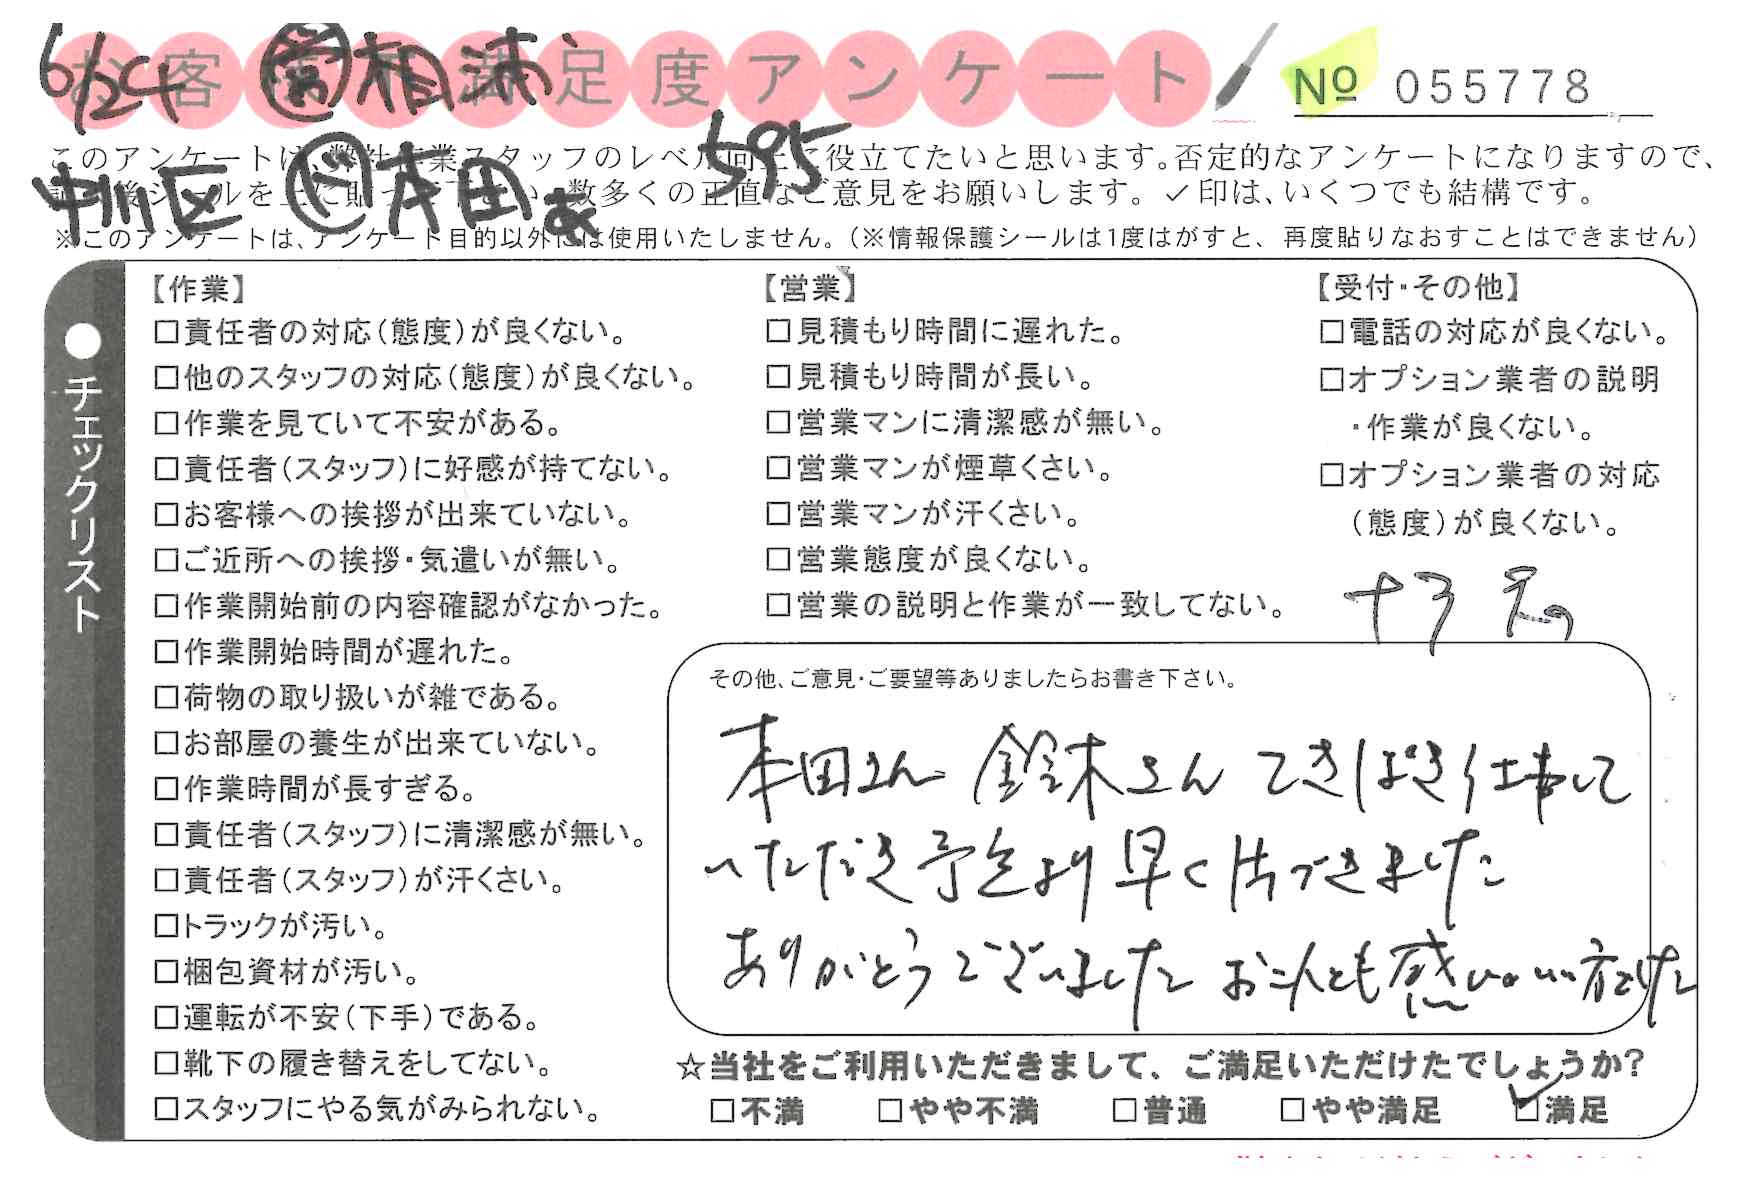 6/24 営 相浦
お客様不満足度アンケート
№ 055778
このアンケートは、弊社作業スタッフのレベル向上に役立てたいと思います。否定的なアンケートになりますので、
595
後シールを上に貼って下さい。数多くの正直なご意見をお願いします。✓印は、いくつでも結構です。
中川区 本田
※このアンケートは、アンケート目的以外には使用いたしません。（※情報保護シールは1度はがすと、再度貼りなおすことはできません）
●チェックリスト
【作業】
□責任者の対応（態度）が良くない。
□他のスタッフの対応（態度）が良くない。
□作業を見ていて不安がある。
□責任者（スタッフ）に好感が持てない。
□お客様への挨拶が出来ていない。
□ご近所への挨拶・気遣いが無い。
□作業開始前の内容確認がなかった。
□作業開始時間が遅れた。
□荷物の取り扱いが雑である。
□お部屋の養生が出来ていない。
□作業時間が長すぎる。
□責任者（スタッフ）に清潔感が無い。
□責任者（スタッフ）が汗くさい。
□トラックが汚い。
□梱包資材が汚い。
□運転が不安（下手）である。
□靴下の履き替えをしてない。
□スタッフにやる気がみられない。
【営業】
□見積もり時間に遅れた。
□見積もり時間が長い。
□営業マンに清潔感が無い。
□営業マンが煙草くさい。
□営業マンが汗くさい。
□営業態度が良くない。
□営業の説明と作業が一致してない。
【受付・その他】
□電話の対応が良くない。
□オプション業者の説明
・作業が良くない。
□オプション業者の対応
（態度）が良くない。
その他、ご意見・ご要望等ありましたらお書き下さい。
本田さん 鈴木さん てきぱき仕事して
いただき予定より早く片づきました
ありがとうございました お二人とも感じのいい方でした
☆当社をご利用いただきまして、ご満足いただけたでしょうか？
□不満 □やや不満 □普通 □やや満足 ☑満足